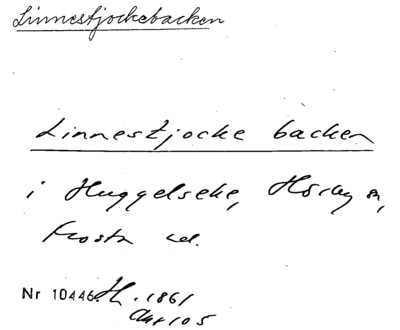 Linnestjockebacken
Linnestjocke backen
i Huggelseke, Hörby sn,
Frosta hd.
Nr 10446 H. 1861